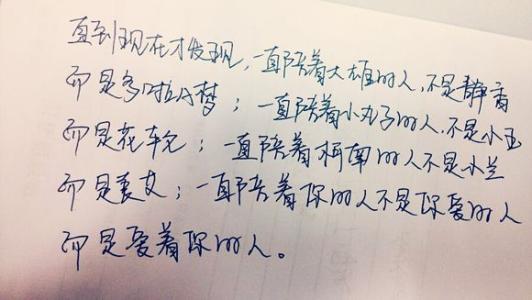 直到现在才发现,一直陪着大雄的人,不是静香
而是多啦A梦;一直陪着小丸子的人,不是小玉
而是花轮;一直陪着柯南的人不是小兰
而是衰哀;一直陪着你的人不是你爱的人
而是爱着你的人。